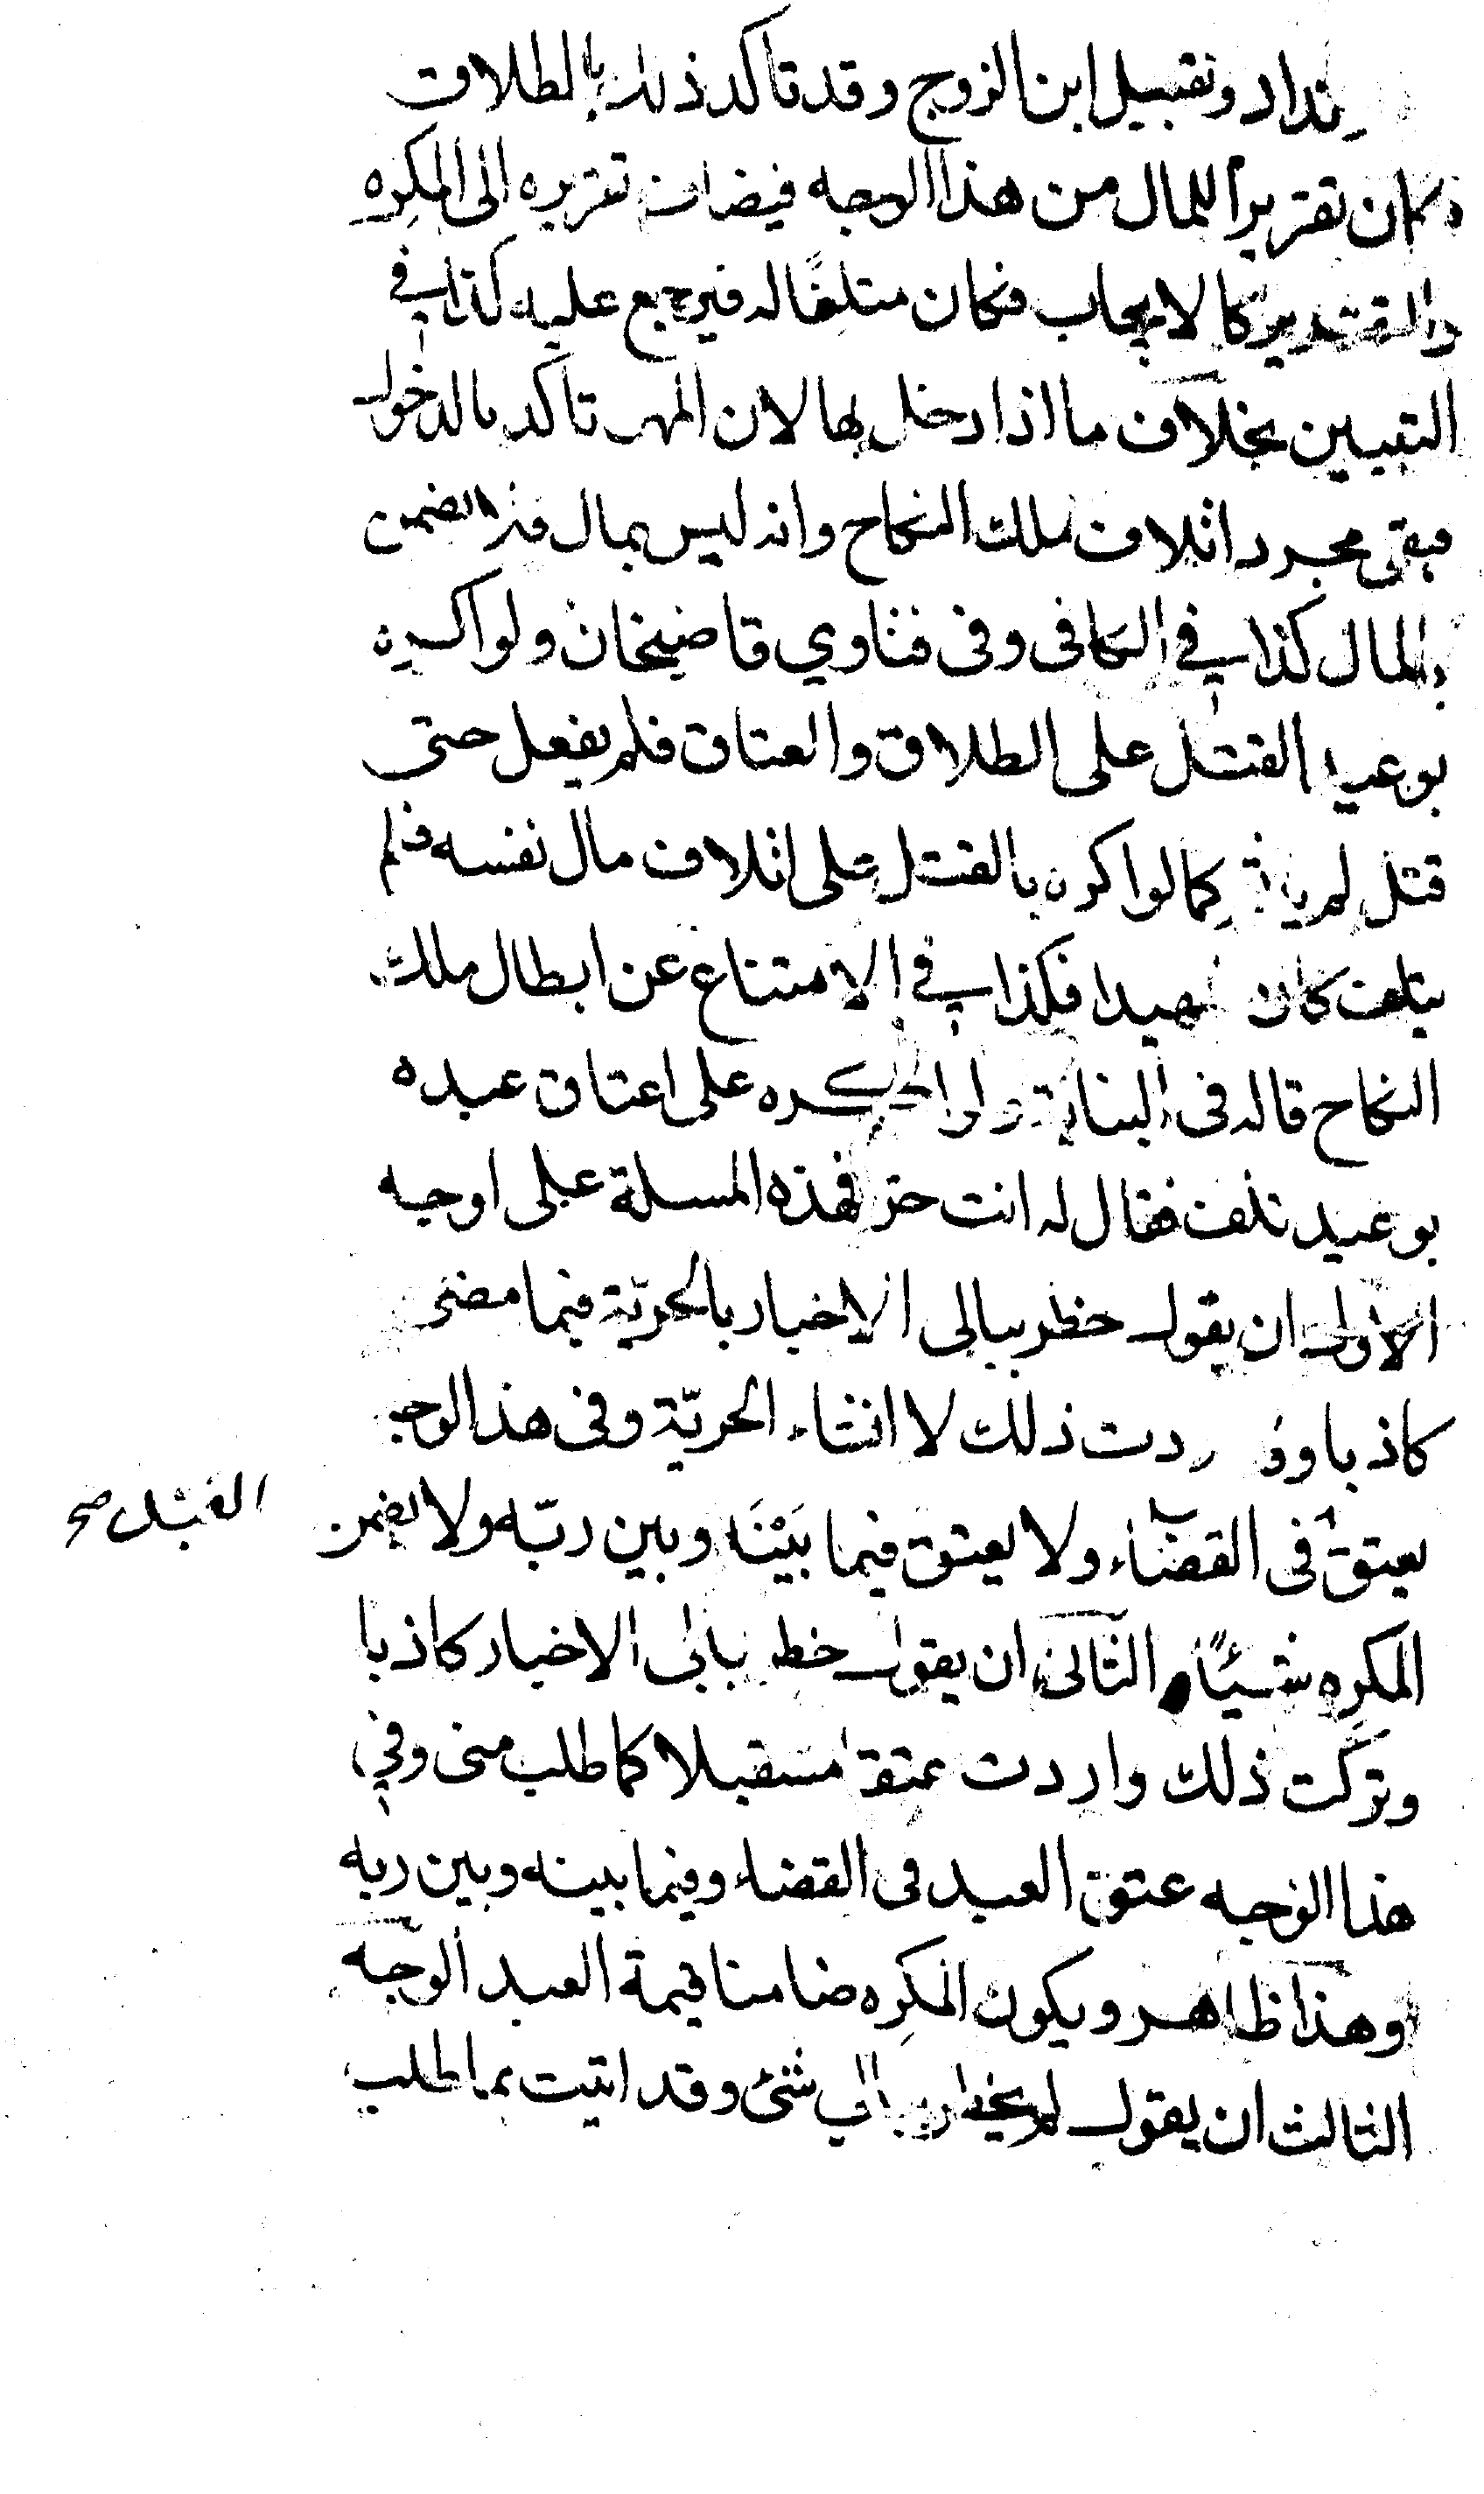 رتداد وتقبيل ابن الزوج وقد تاكد ذلك بالطلاق
وكان تقريراً للمال من هذا الوجه فيضاف تقريره الى المكرِه
والتقدير كالايجاب فكان متلفًا له فيرجع عليه كذا في
التبيين بخلاف ما اذا دخل بها لان المهر تاكد بالدخول
فبقى مجرد اتلاف ملك النكاح وانه ليس بمال فلا يضمن
بالمال كذا في الكافى وفى فتاوي قاضيخان ولو اكره
بوعيد القتل على الطلاق والعتاق فلم يفعل حتى
قتل لم ياثم كما لو اكره بالقتل على اتلاف مال نفسه فلم
يتلف كان شهيدا فكذا في الامتناع عن ابطال ملك
النكاح قاله فى البناية ولو اكره على اعتاق عبده
بوعيد تلف فقال له انت حر فهذه المسلة على اوجه
الاول ان يقول خطر ببالى الاخبار بالحريّة فيما مضى
كاذبا وقد اردت ذلك لا انشاء الحريّة وفى هذا الوجه
يعتق فى القضاء ولا يعتق فيما بَيْنَه وبين ربّه ولا يضمن
العبد صح
المكرِه شيئًا الثانى ان يقول خطر ببالى الاخبار كاذبا
وتركت ذلك واردت عتقا مستقبلا كما طلب منى وفي
هذا الوجه عتق العبد فى القضاء وفيما بينه وبين ربه
وهذا ظاهر ويكون المكرِه ضامنا قيمة العبد الوجه
الثالث ان يقول لم يخطر ببالي شئ وقد اتيت بما طلب